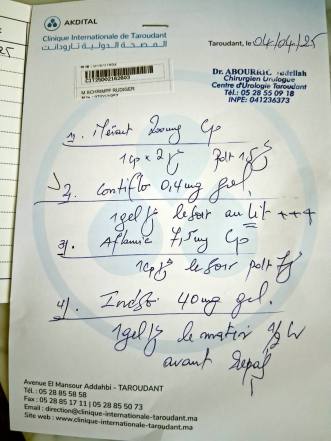 AKDITAL
Clinique Internationale de Taroudant
المصحة الدولية تارودانت
Taroudant, le 04/04/25
M.SCHRIMPF RUDIGER
Chirurgien Urologue
Centre d'Urologie Taroudant
Tél.: 05 28 55 09 18
INPE: 041236373
200mg Cp
1cp x 2 /j
2. Contiflo 0,4mg gel
1gel /j le soir au lit +++
3). Aflamic 7,5mg Cp
1cp/j le soir pdt 7j
4). 40mg gel.
1gel/j le matin 1/2 h
avant repas
Avenue El Mansour Addahbi - TAROUDANT
Tél : 05 28 85 58 58
Fax : 05 28 85 17 11 | 05 28 85 50 73
Email : direction@clinique-internationale-taroudant.ma
Site web : www.clinique-internationale-taroudant.ma